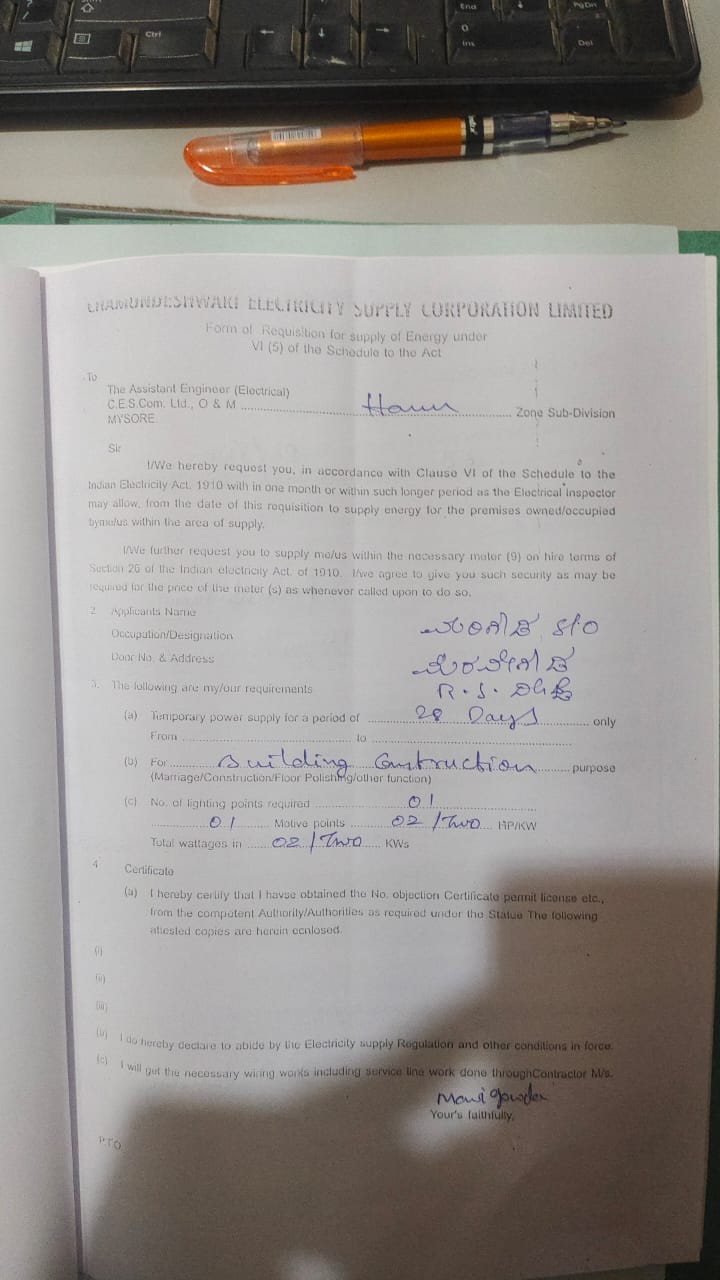 CHAMUNDESHWARI ELECTRICITY SUPPLY CORPORATION LIMITED
Form of Requisition for supply of Energy under
VI (5) of the Schedule to the Act
To
The Assistant Engineer (Electrical)
C.E.S.Com. Ltd., O & M ........ Zone Sub-Division
MYSORE
Sir
I/We hereby request you, in accordance with Clause VI of the Schedule to the
Indian Electricity Act, 1910 with in one month or within such longer period as the Electrical Inspector
may allow, from the date of this requisition to supply energy for the premises owned/occupied
byme/us within the area of supply.
I/We further request you to supply me/us within the necessary meter (9) on hire terms of
Section 26 of the Indian electricity Act. of 1910. I/we agree to give you such security as may be
required for the price of the meter (s) as whenever called upon to do so.
2. Applicants Name
Occupation/Designation S/O
Door No. & Address
R.S.
3. The following are my/our requirements
(a) Temporary power supply for a period of 28 Days only
From ........ to ........
(b) For Building Construction purpose
(Marriage/Construction/Floor Polishing/other function)
(c) No. of lighting points required 01
01 Motive points 02/Two HP/KW
Total wattages in 02/Two KWs
4 Certificate
(a) I hereby certify that I havse obtained the No. objection Certificate permit license etc.,
from the competent Authority/Authorities as required under the Statue The following
attested copies are herein ecnlosed.
(i)
(ii)
(iii)
(b) I do hereby declare to abide by the Electricity supply Regulation and other conditions in force.
(c) I will get the necessary wiring works including service line work done throughContractor M/s.
Your's faithfully,
P.T.O